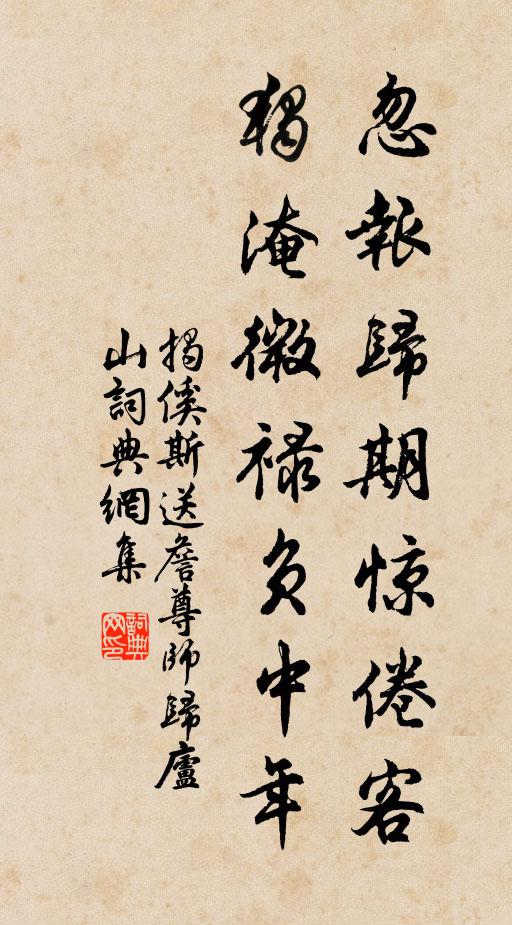 忽報歸期惊倦客
獨淹微禄負中年
揭傒斯送詹尊師歸廬
山詞典網集
詞典
网印